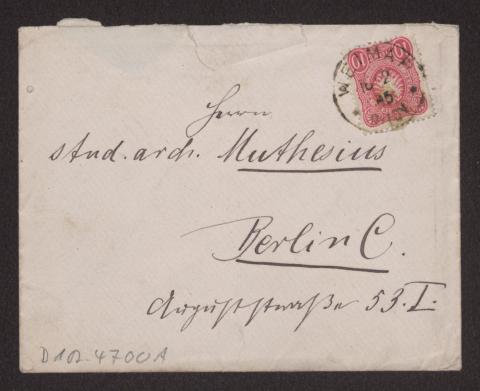 WEIMAR
10 10
Herrn
stud. arch. Muthesius
Berlin C.
Auguststraße 53. I.
D 102-4700A